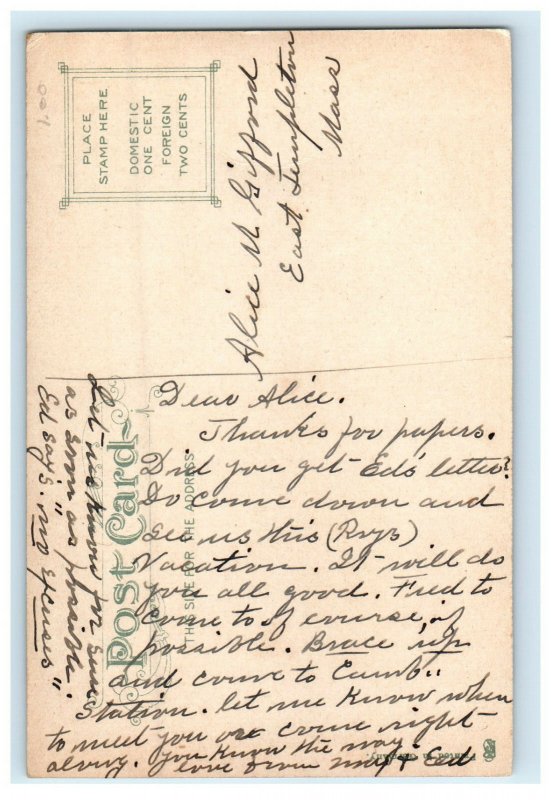 PLACE
STAMP HERE
DOMESTIC
ONE CENT
FOREIGN
TWO CENTS
Alice M Gifford
East Templeton
Mass
Post Card
THIS SIDE FOR THE ADDRESS
Dear Alice.
Thanks for papers.
Did you get Ed's letter?
Do come down and
see us this (Roy's)
Vacation. It will do
you all good. Fred to
come to of course, if
possible. Brace up
and come to Camb..
Station. let me know when
to meet you or come right
along. you know the way
love from May & Ed
Let us know for sure
as soon as possible.
Ed says. "no excuses"